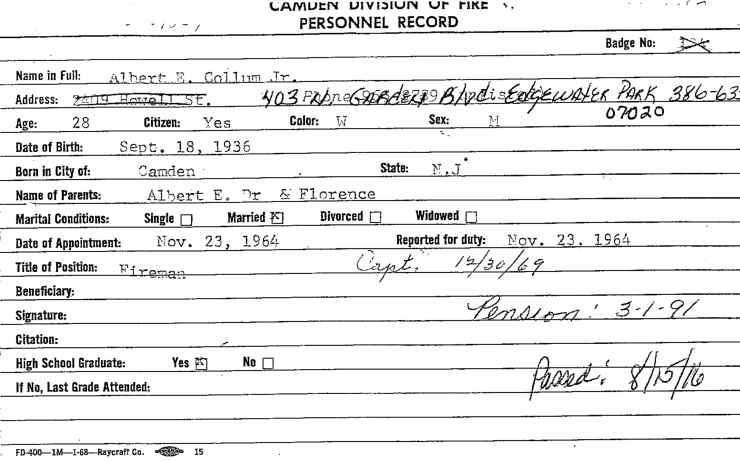 CAMDEN DIVISION OF FIRE
PERSONNEL RECORD
Badge No:
Name in Full: Albert E. Collum Jr.
Address: 2409 Howell St. 403 N. GARDEN BLVD EDGEWATER PARK 386-63
07020
Age: 28 Citizen: Yes Color: W Sex: M
Date of Birth: Sept. 18, 1936
Born in City of: Camden State: N.J
Name of Parents: Albert E. & Florence
Marital Conditions: Single Married Divorced Widowed
Date of Appointment: Nov. 23, 1964 Reported for duty: Nov. 23. 1964
Title of Position: Fireman Capt. 12/30/69
Beneficiary:
Signature: Pension: 3-1-91
Citation:
High School Graduate: Yes No
If No, Last Grade Attended: Passed: 8/15/16
FD-400—1M—1-68—Raycraft Co. 15